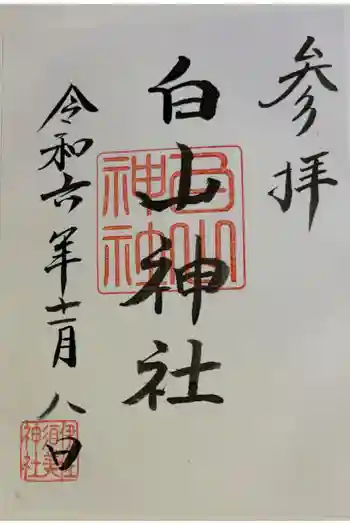 参拝
白山神社
令和六年十一月八日
白山神社
伊豆須美神社